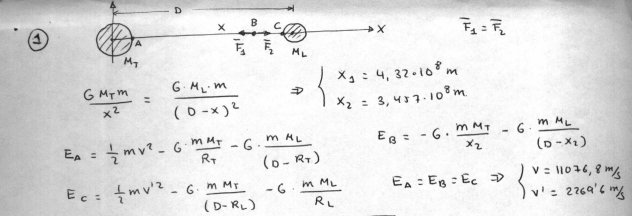 1
D
x B C X
A F₁ F₂
M_T M_L
F̅₁ = F̅₂
G M_T m / x² = G·M_L·m / (D-x)² ⇒ { x₁ = 4,32·10⁸ m
x₂ = 3,457·10⁸ m.
E_A = ½ m v² - G· m M_T / R_T - G· m M_L / (D-R_T)
E_B = -G· m M_T / x₂ - G· m M_L / (D-x₂)
E_C = ½ m v'² - G· m M_T / (D-R_L) - G· m M_L / R_L
E_A = E_B = E_C ⇒ { v = 11076,8 m/s
v' = 2269'6 m/s